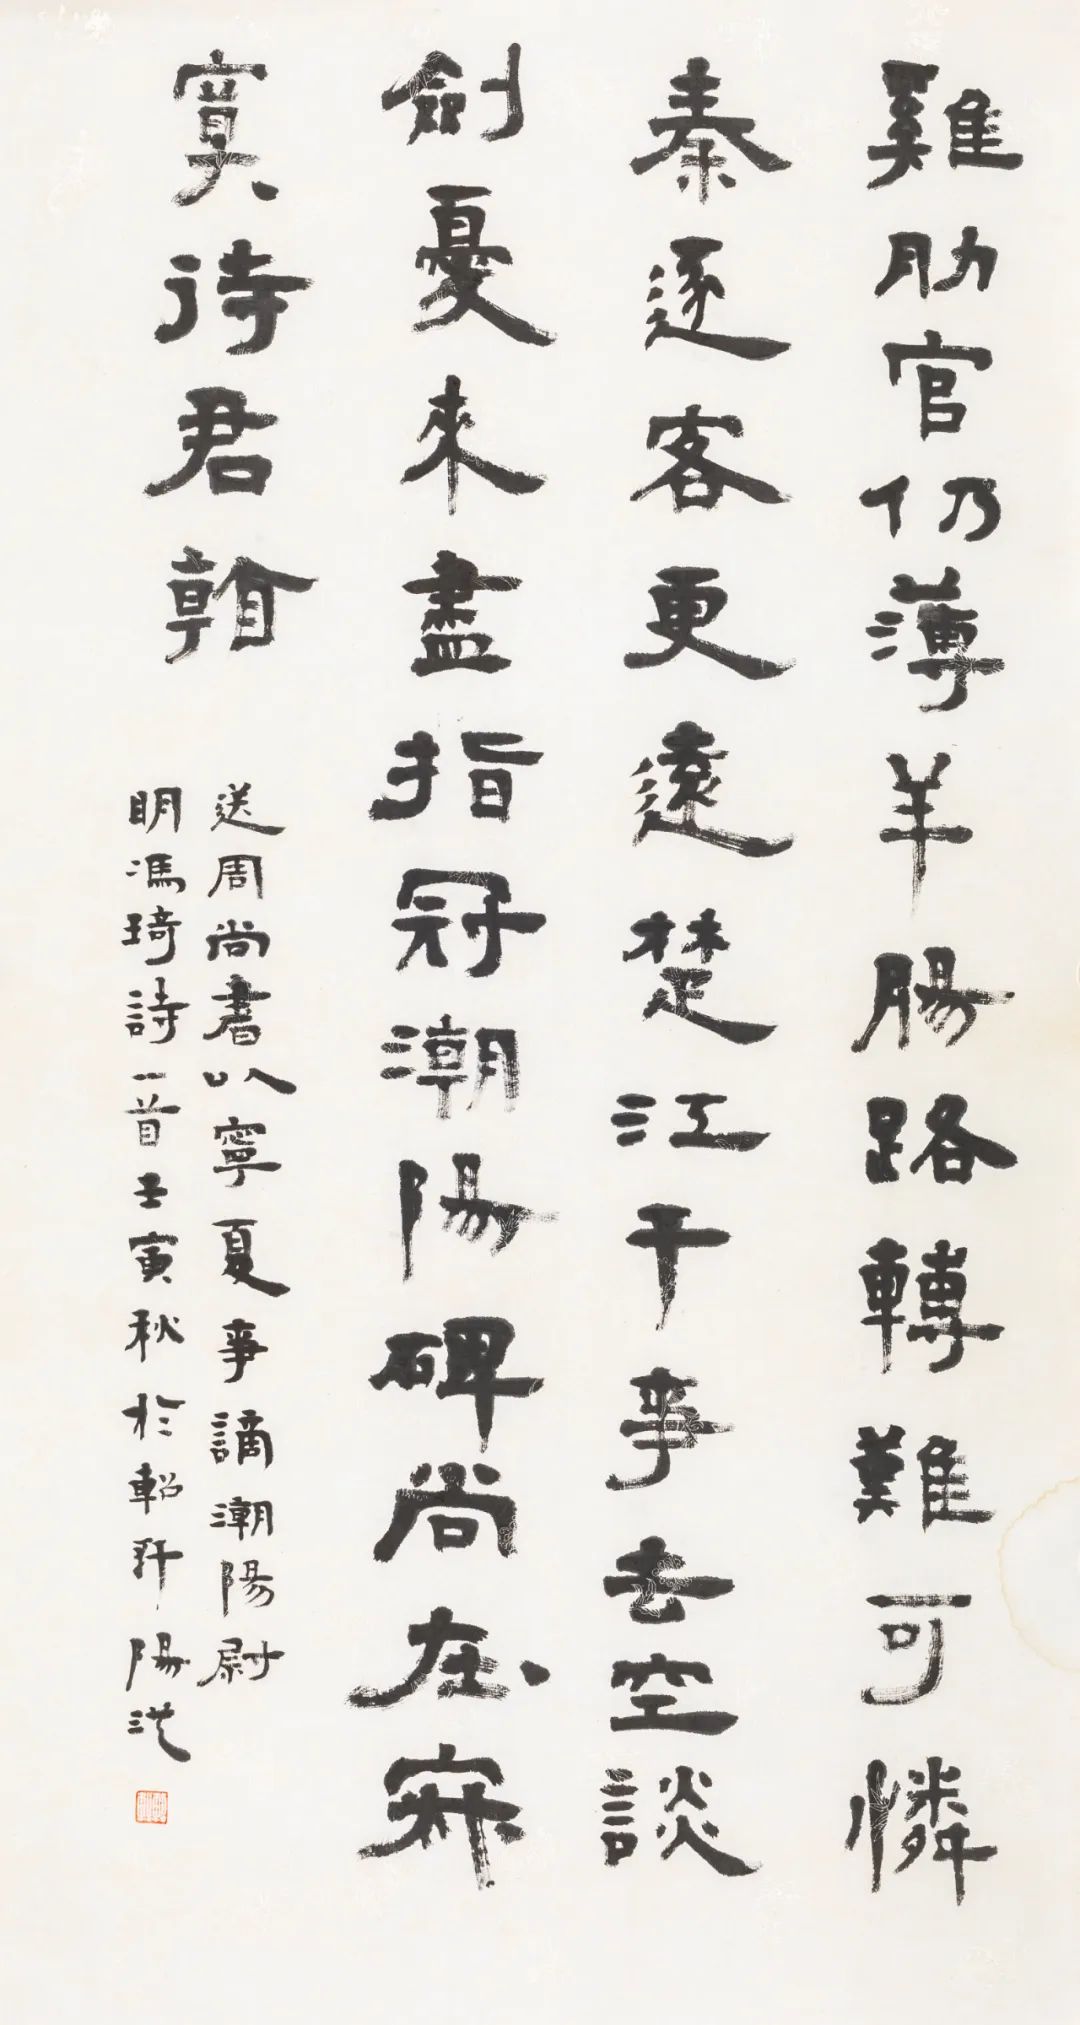 雞肋官仍薄羊腸路轉難可憐
秦逐客更遠楚江干事去空談
劍憂來盡指冠潮陽碑尚在寂
寞待君翰
送周尚書以寧夏事謫潮陽尉
明馮琦詩一首壬寅秋於軺軒陽洪